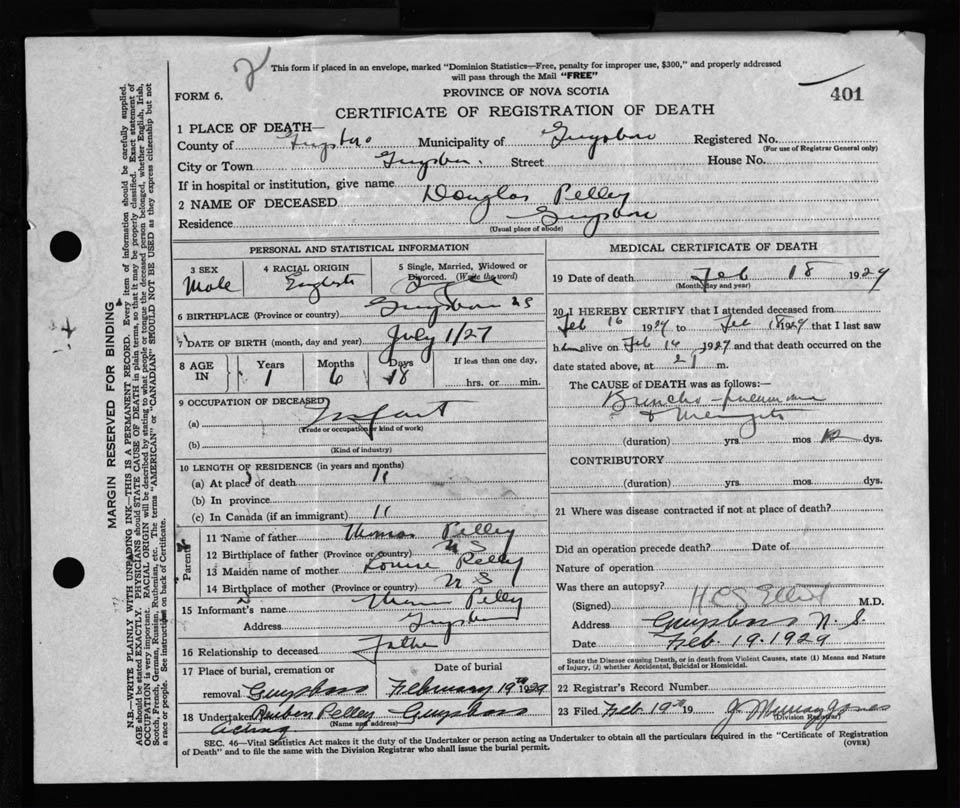 2
This form if placed in an envelope, marked "Dominion Statistics—Free, penalty for improper use, $300," and properly addressed
will pass through the Mail "FREE"
FORM 6.
PROVINCE OF NOVA SCOTIA
401
CERTIFICATE OF REGISTRATION OF DEATH
1 PLACE OF DEATH—
County of Guysboro Municipality of Guysboro Registered No.
(For use of Registrar General only)
City or Town Guysboro Street House No.
If in hospital or institution, give name
2 NAME OF DECEASED Douglas Pelley
Residence Guysboro
(Usual place of abode)
PERSONAL AND STATISTICAL INFORMATION
3 SEX
Male
4 RACIAL ORIGIN
English
5 Single, Married, Widowed or
Divorced. (Write the word)
Single
6 BIRTHPLACE (Province or country) Guysboro NS
7 DATE OF BIRTH (month, day and year) July 1/27
8 AGE
IN
Years Months Days If less than one day,
1 6 18 hrs. or min.
9 OCCUPATION OF DECEASED
(a) Infant
(Trade or occupation or kind of work)
(b)
(Kind of industry)
10 LENGTH OF RESIDENCE (in years and months)
(a) At place of death
(b) In province
(c) In Canada (if an immigrant)
Parents
11 Name of father Thomas Pelley
12 Birthplace of father (Province or country) N S
13 Maiden name of mother Louise Pelley
14 Birthplace of mother (Province or country) N S
15 Informant's name Thomas Pelley
Address Guysboro
16 Relationship to deceased Father
17 Place of burial, cremation or Date of burial
removal Guysboro February 19th 1929
18 Undertaker Reuben Pelley Guysboro
(Name and address)
acting
MEDICAL CERTIFICATE OF DEATH
19 Date of death Feb 18 1929
(Month, day and year)
20 I HEREBY CERTIFY that I attended deceased from
Feb 16 1929 to Feb 18 1929 that I last saw
him alive on Feb 16 1929 and that death occurred on the
date stated above, at m.
The CAUSE of DEATH was as follows:—
Broncho-pneumonia
& Meningitis
(duration) yrs. mos dys.
CONTRIBUTORY
(duration) yrs. mos dys.
21 Where was disease contracted if not at place of death?
Did an operation precede death? Date of
Nature of operation
Was there an autopsy?
(Signed) Elliott M.D.
Address Guysboro N. S.
Date Feb. 19. 1929
State the Disease causing Death, or in death from Violent Causes, state (1) Means and Nature
of Injury, (2) whether Accidental, Suicidal or Homicidal.
22 Registrar's Record Number
23 Filed Feb 19th 19 J. Murray Jones
(Division Registrar)
SEC. 46—Vital Statistics Act makes it the duty of the Undertaker or person acting as Undertaker to obtain all the particulars required in the "Certificate of Registration
of Death" and to file the same with the Division Registrar who shall issue the burial permit.
(OVER)
MARGIN RESERVED FOR BINDING
N.B.—WRITE PLAINLY WITH UNFADING INK—THIS IS A PERMANENT RECORD. Every item of information should be carefully supplied.
AGE should be stated EXACTLY. PHYSICIANS should STATE CAUSE OF DEATH in plain terms, so that it may be properly classified. Exact statement of
OCCUPATION is very important. RACIAL ORIGIN will be described by stating to what people or tongue the deceased person belonged, whether English, Irish,
Scotch, French, German, Russian, Ruthenian, etc. The terms "AMERICAN" or "CANADIAN" SHOULD NOT BE USED as they express citizenship but not
a race or people. See instructions on back of Certificate.